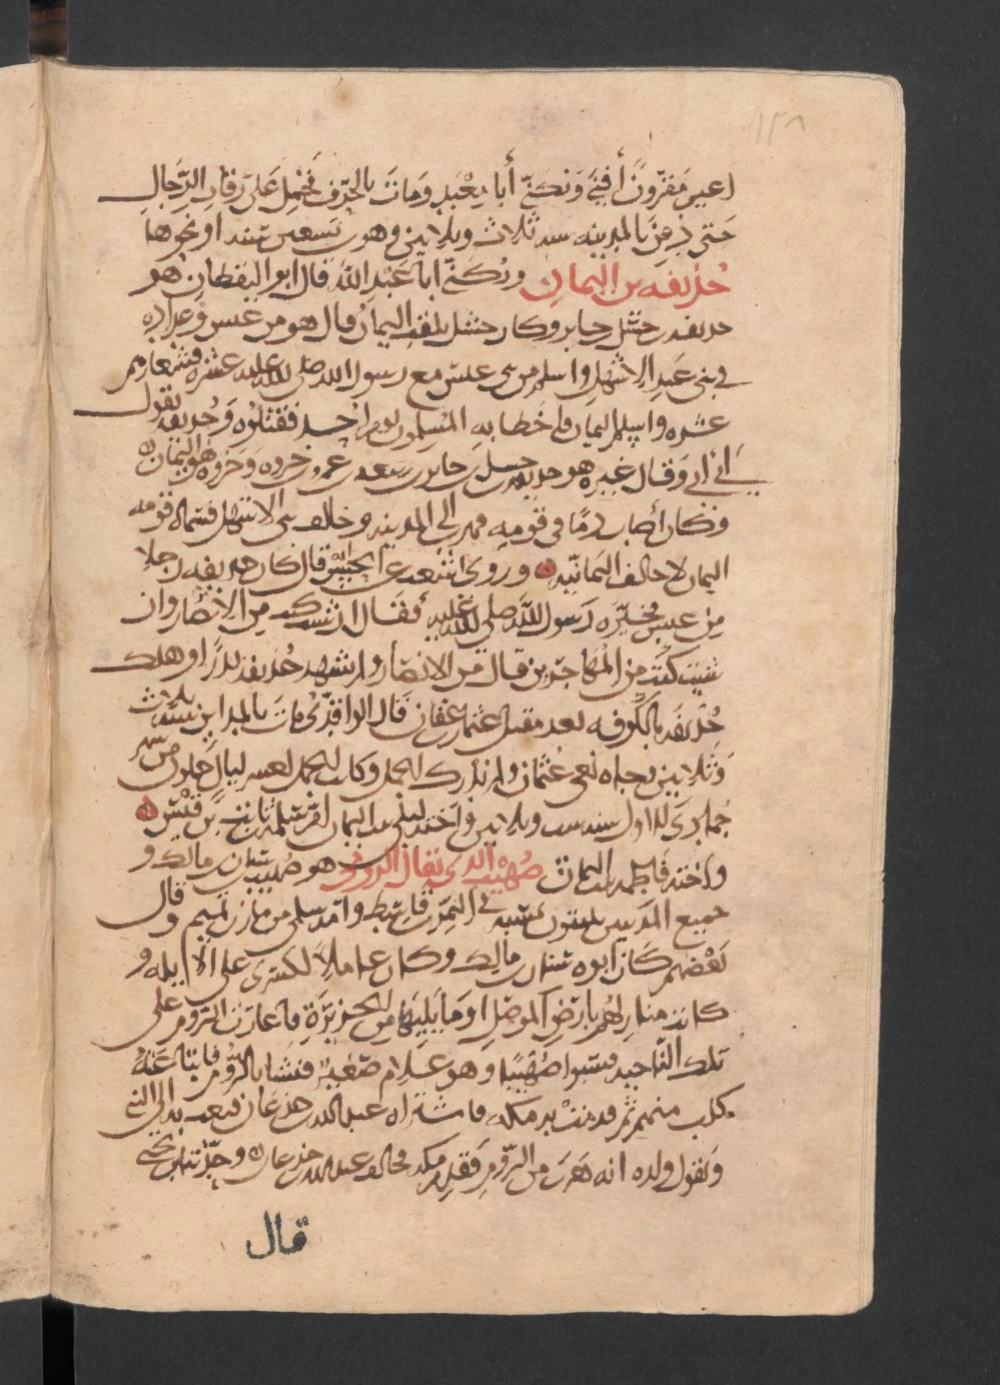 اعين مقرون أقنى ويكنى أبا معبد ومات بالجرف فحمل على رقاب الرجال
حتى دفن بالمدينه سنه ثلاث وثلاثين وهو بن سبعين سنه او نحوها
حذيفه بن اليمان ويكنى ابا عبد الله قال ابو اليقظان هو
حذيفه بن حسل بن جابر وكان حسل يلقب اليمان وقال هو من عبس وعداده
في بني عبد الاشهل واسلم من بني عبس مع رسول الله صلى الله عليه عشره فشعارهم
عشره واسلم اليمان فاخطا به المسلمون يوم احد فقتلوه وحذيفه يقول
أبي أبي وقال غيره هو حذيفه بن حسل بن جابر بن ربيعه بن عمرو بن جروه وجروه هو اليمان
وكان أصاب دما في قومه فهرب الى المدينه وحالف بني الاشهل فسماه قومه
اليمان لانه حالف اليمانيه وروى اشعث عن الحسن قال كان حذيفه رجلا
من عبس فخيره رسول الله صلى الله عليه فقال ان شئت كنت من الانصار وان
شئت كنت من المهاجرين قال من الانصار ولم يشهد حذيفه بدرا وهلك
حذيفه بالكوفه بعد مقتل عثمان بن عفان قال الواقدي مات بالمداين سنه ست
وثلاثين وجاه نعي عثمان ولم يدرك الجمل وكانت الجمل لعشر ليال خلون من شهر
جمادى الاول سنه ست وثلاثين واخته ليلى بنت اليمان
واخته فاطمه بنت اليمان صهيب الذي يقال الرومي هو صهيب بن سنان بن مالك و
جميع المدنيين يثبتون نسبه في النمر بن قاسط وامه سلمى من مازن تميم وقال
بعضهم كان ابوه سنان بن مالك وكان عاملا لكسرى على الابله و
كانت منازلهم بارض الموصل او ما يليها من الجزيرة فاغارت الروم على
تلك الناحيه فسبوا صهيبا وهو غلام صغير فنشا بالروم فابتاعته
كلب منهم ثم قدمت به مكه فاشتراه عبد الله بن جدعان فبعث به الى النبي
ويقول ولده انه هرب من الروم فقدم مكه فحالف عبد الله بن جدعان
قال